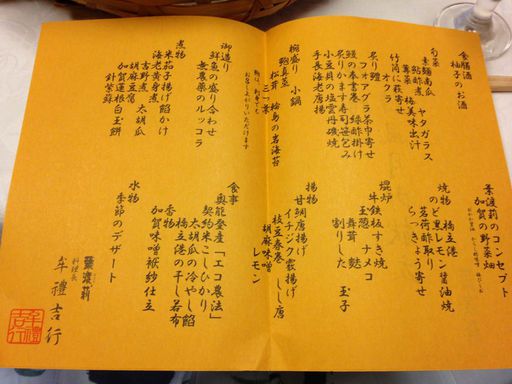 食膳酒
柚子のお酒
旬菜
素麺南瓜 ヤタガラス
鮑酢煮 梅美味出汁
竹筒に萩寄せ
オクラ
炙り鱧
フォアグラ茶巾寄せ
鰻の奉書巻 緑酢掛け
炙りかます寿司笹包み
小豆貝の塩雲丹磯焼
手長海老唐揚
椀盛り 小鍋
鮑真蒸
松茸 輪島の岩海苔
お召し上がりいただけます
御造り
鮮魚の盛り合わせ
無農薬のルッコラ
煮物
米茄子揚げ餡かけ
海老黄身煮
吉野煮 太胡瓜
胡麻豆腐
加賀蓮根白玉餅
針紫蘇
葉渡莉のコンセプト
加賀の野菜畑
焼物 橋立港
のど黒レモン醤油焼
茗荷酢取り
らっきょう寄せ
焜炉
牛鉄板すき焼
玉葱 ナメコ
舞茸 麩
割りした 玉子
揚物
甘鯛唐揚げ
イチジク霰揚げ
枝豆春巻 しし唐
胡麻味噌
レモン
食事
奥能登産「エコ農法」
契約米こしひかり
太胡瓜の冷やし餡
橋立港の干し若布
香物
加賀味噌袱紗仕立
水物
季節のデザート
葉渡莉
料理長
牟禮吉行